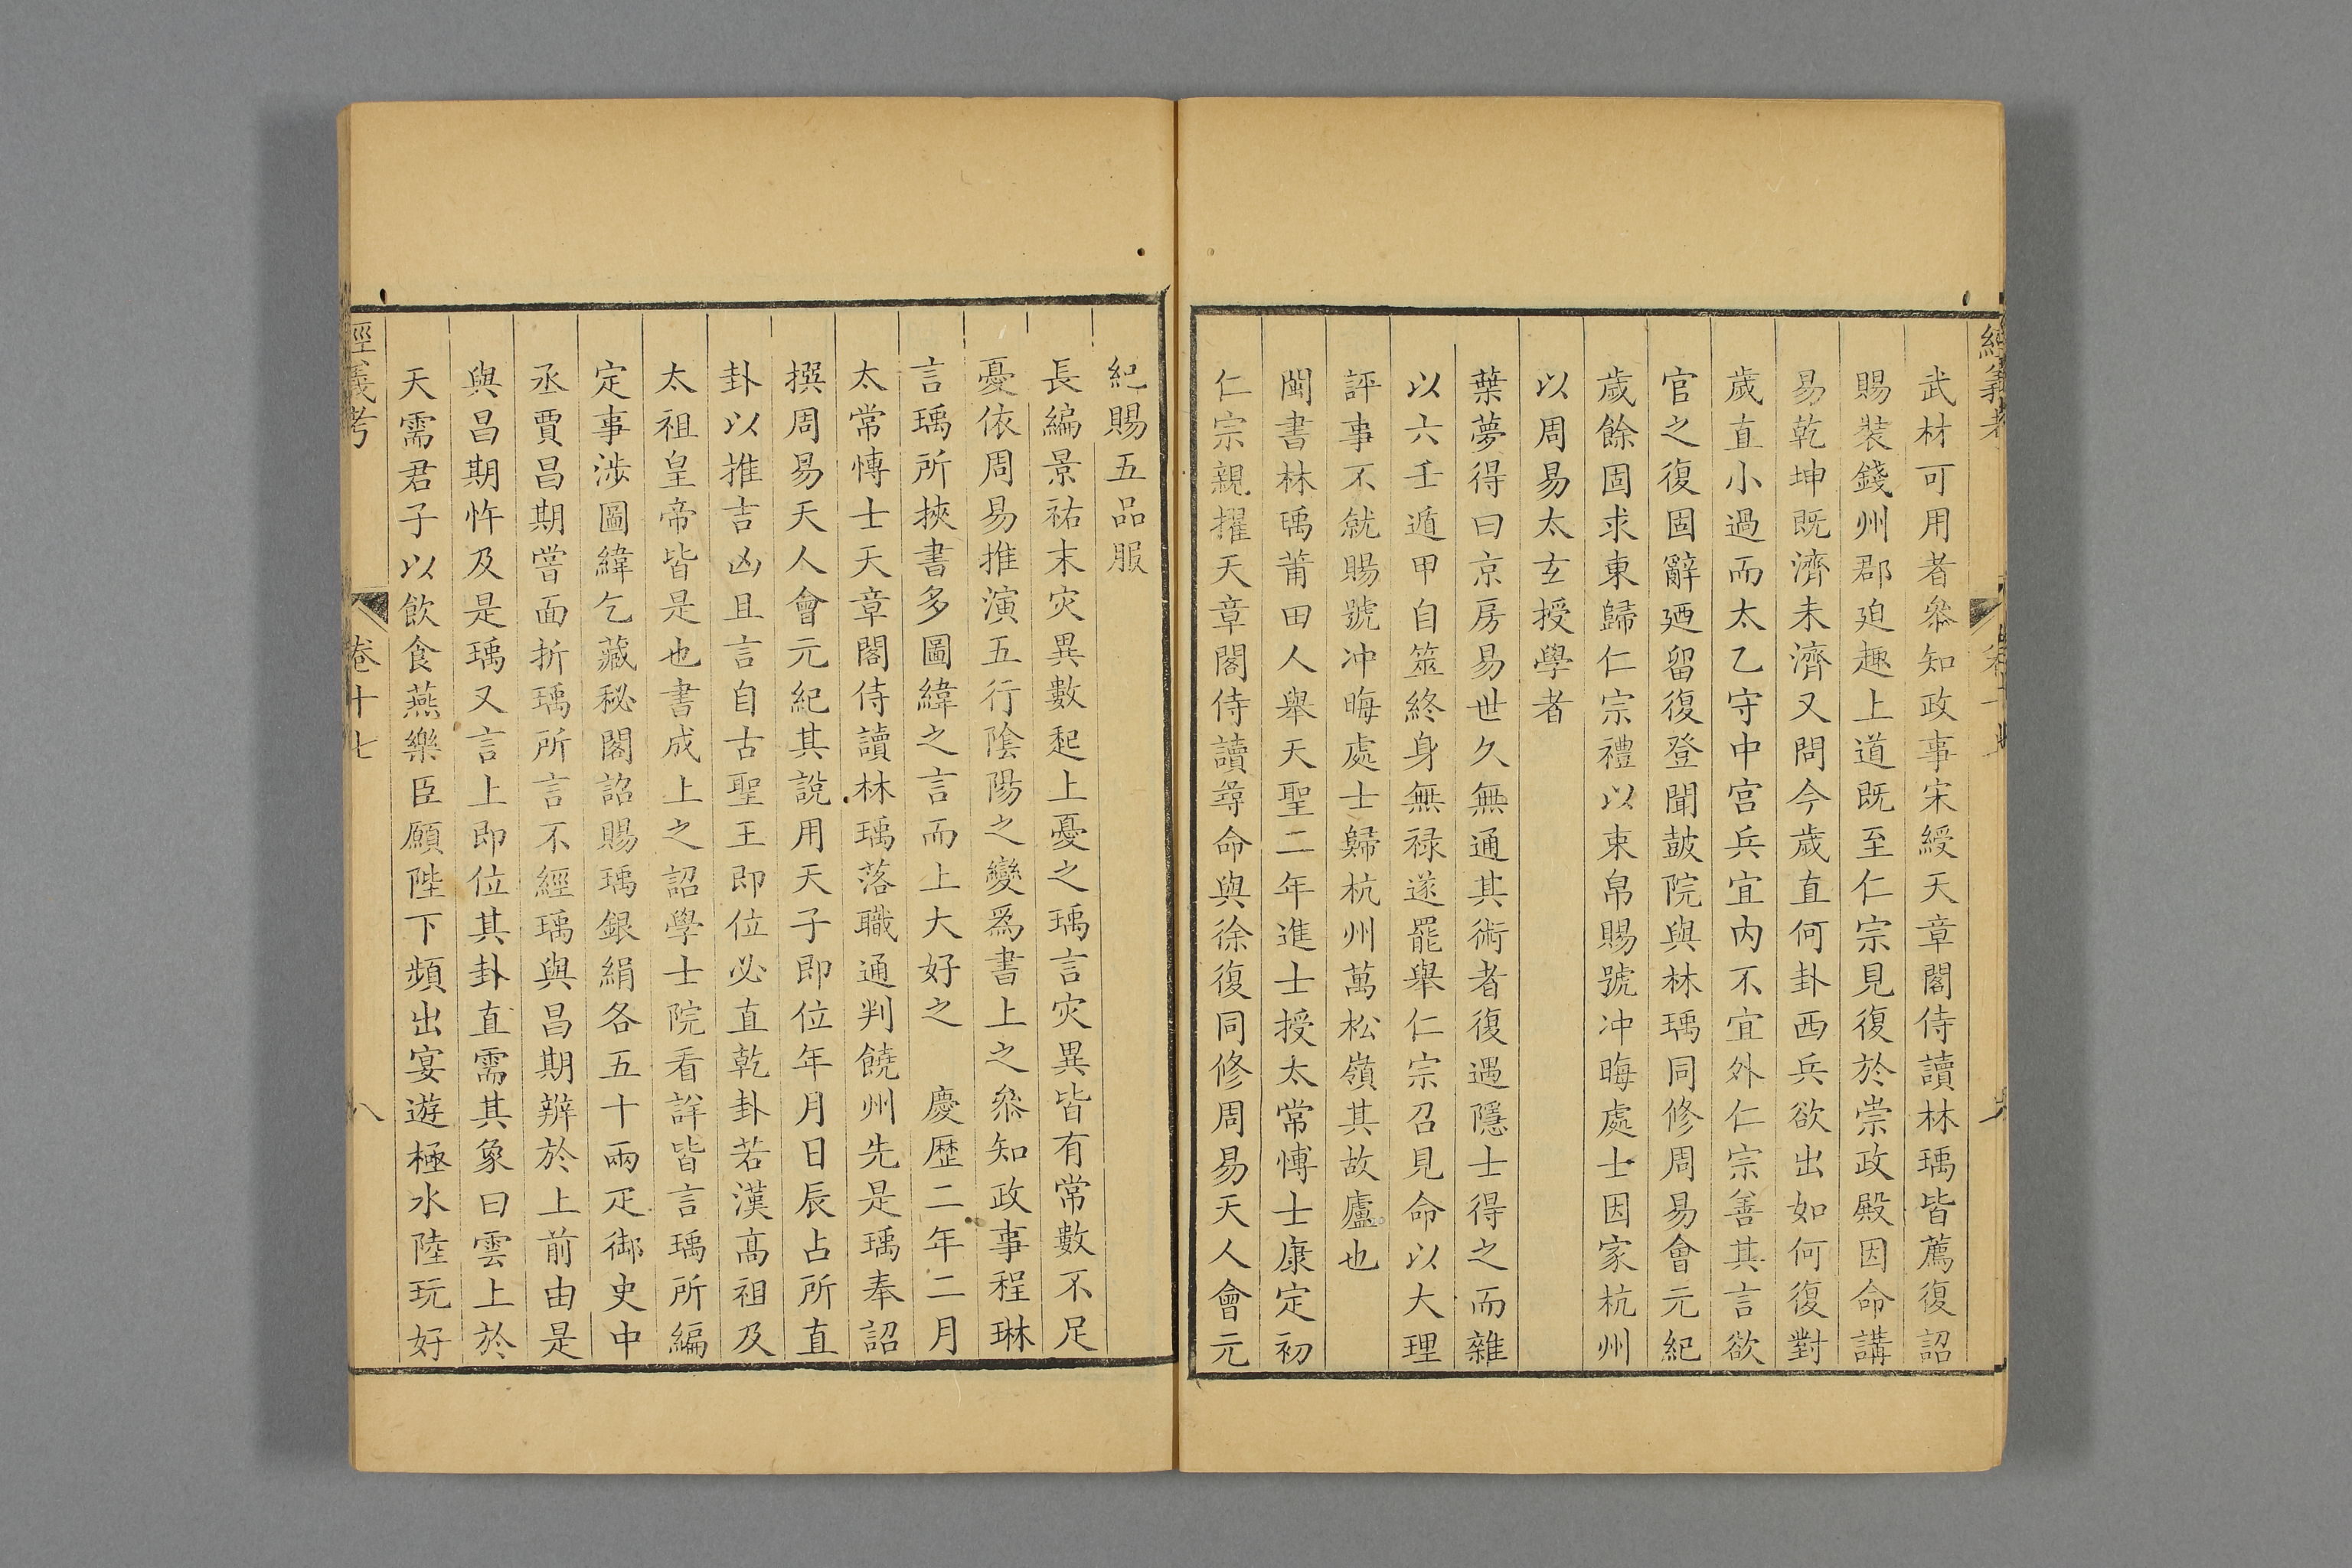 經義考
武材可用者叅知政事宋綬天章閣侍讀林瑀皆薦復詔
賜裝錢州郡廹趣上道既至仁宗見復於崇政殿因命講
易乾坤既濟未濟又問今歲直何卦西兵欲出如何復對
歲直小過而太乙守中宫兵宜内不宜外仁宗善其言欲
官之復固辭廼留復登聞鼓院與林瑀同修周易會元紀
歲餘固求東歸仁宗禮以束帛賜號冲晦處士因家杭州
以周易太玄授學者
葉夢得曰京房易世久無通其術者復遇隱士得之而雜
以六壬遁甲自筮終身無禄遂罷舉仁宗召見命以大理
評事不就賜號冲晦處士歸杭州萬松嶺其故廬也
閩書林瑀莆田人舉天聖二年進士授太常博士康定初
仁宗親擢天章閣侍讀尋命與徐復同修周易天人會元
紀賜五品服
長編景祐末灾異數起上憂之瑀言灾異皆有常數不足
憂依周易推演五行陰陽之變爲書上之叅知政事程琳
言瑀所挾書多圖緯之言而上大好之　慶歷二年二月
太常博士天章閣侍讀林瑀落職通判饒州先是瑀奉詔
撰周易天人會元紀其說用天子即位年月日辰占所直
卦以推吉凶且言自古聖王即位必直乾卦若漢高祖及
太祖皇帝皆是也書成上之詔學士院看詳皆言瑀所編
定事涉圖緯乞藏秘閣詔賜瑀銀絹各五十兩疋御史中
丞賈昌期嘗面折瑀所言不經瑀與昌期辨於上前由是
與昌期忤及是瑀又言上即位其卦直需其象曰雲上於
天需君子以飲食燕樂臣願陛下頻出宴遊極水陸玩好
經義考　卷十七　八